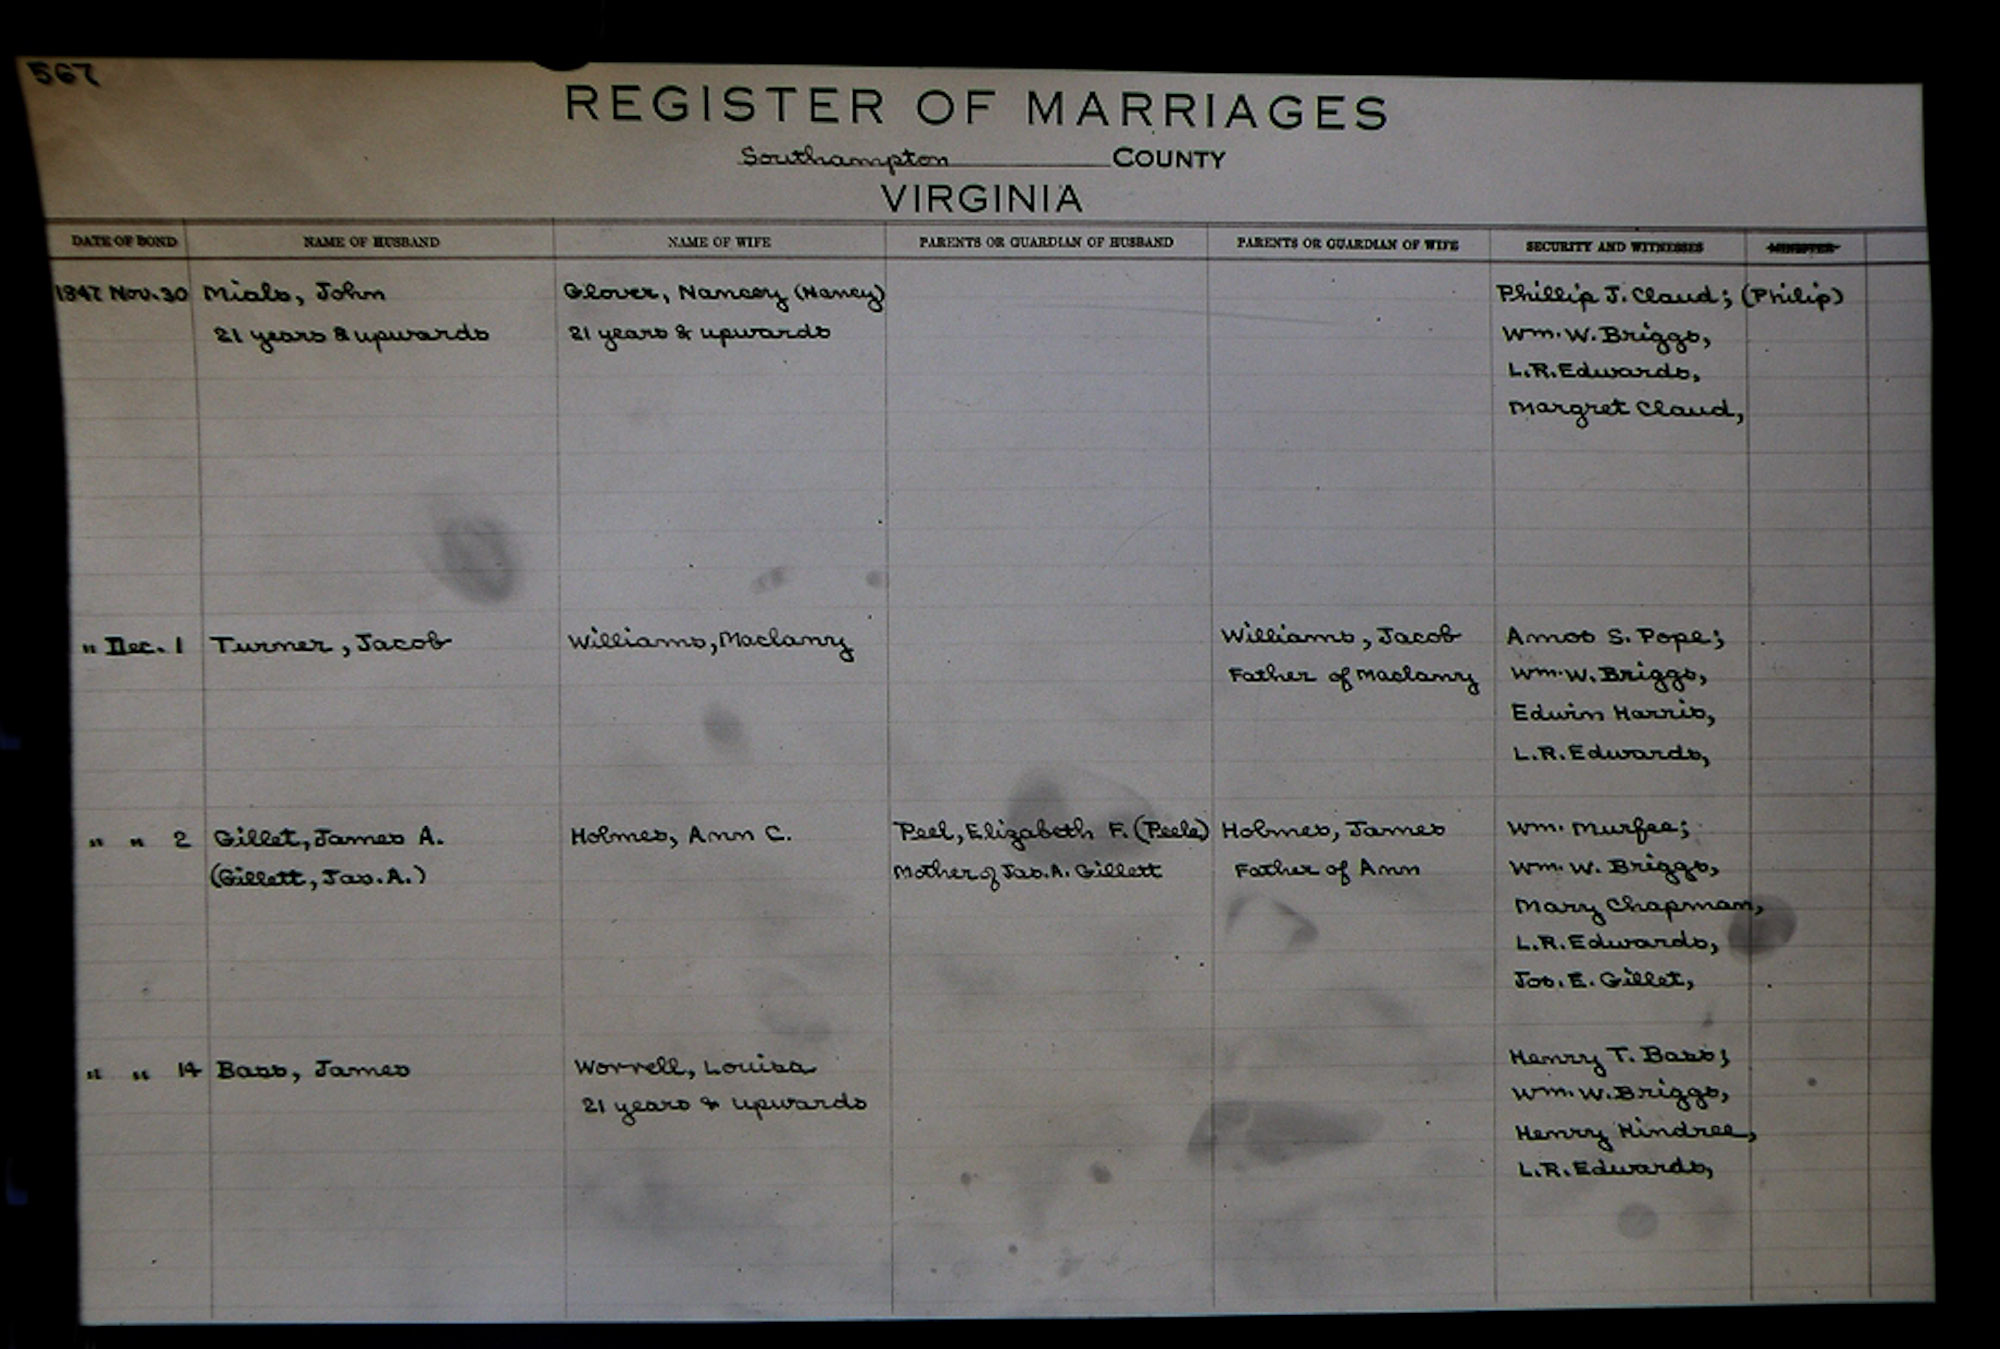 567
REGISTER OF MARRIAGES
Southampton COUNTY
VIRGINIA
DATE OF BOND NAME OF HUSBAND NAME OF WIFE PARENTS OR GUARDIAN OF HUSBAND PARENTS OR GUARDIAN OF WIFE SECURITY AND WITNESSES MINISTER
1847 Nov. 30 Mials, John Glover, Nancey (Nancy) Phillip J. Claud; (Philip)
21 years & upwards 21 years & upwards Wm. W. Briggs,
L.R. Edwards,
Margret Claud,
" Dec. 1 Turner, Jacob Williams, Maclany Williams, Jacob Amos S. Pope;
Father of Maclany Wm. W. Briggs,
Edwin Harris,
L.R. Edwards,
" " 2 Gillet, James A. Holmes, Ann C. Peel, Elizabeth F. (Peele) Holmes, James Wm. Murfee;
(Gillett, Jas. A.) Mother of Jas. A. Gillett Father of Ann Wm. W. Briggs,
Mary Chapman,
L.R. Edwards,
Jos. E. Gillet,
" " 14 Bass, James Worrell, Louisa Henry T. Bass;
21 years & upwards Wm. W. Briggs,
Henry Hindree,
L.R. Edwards,